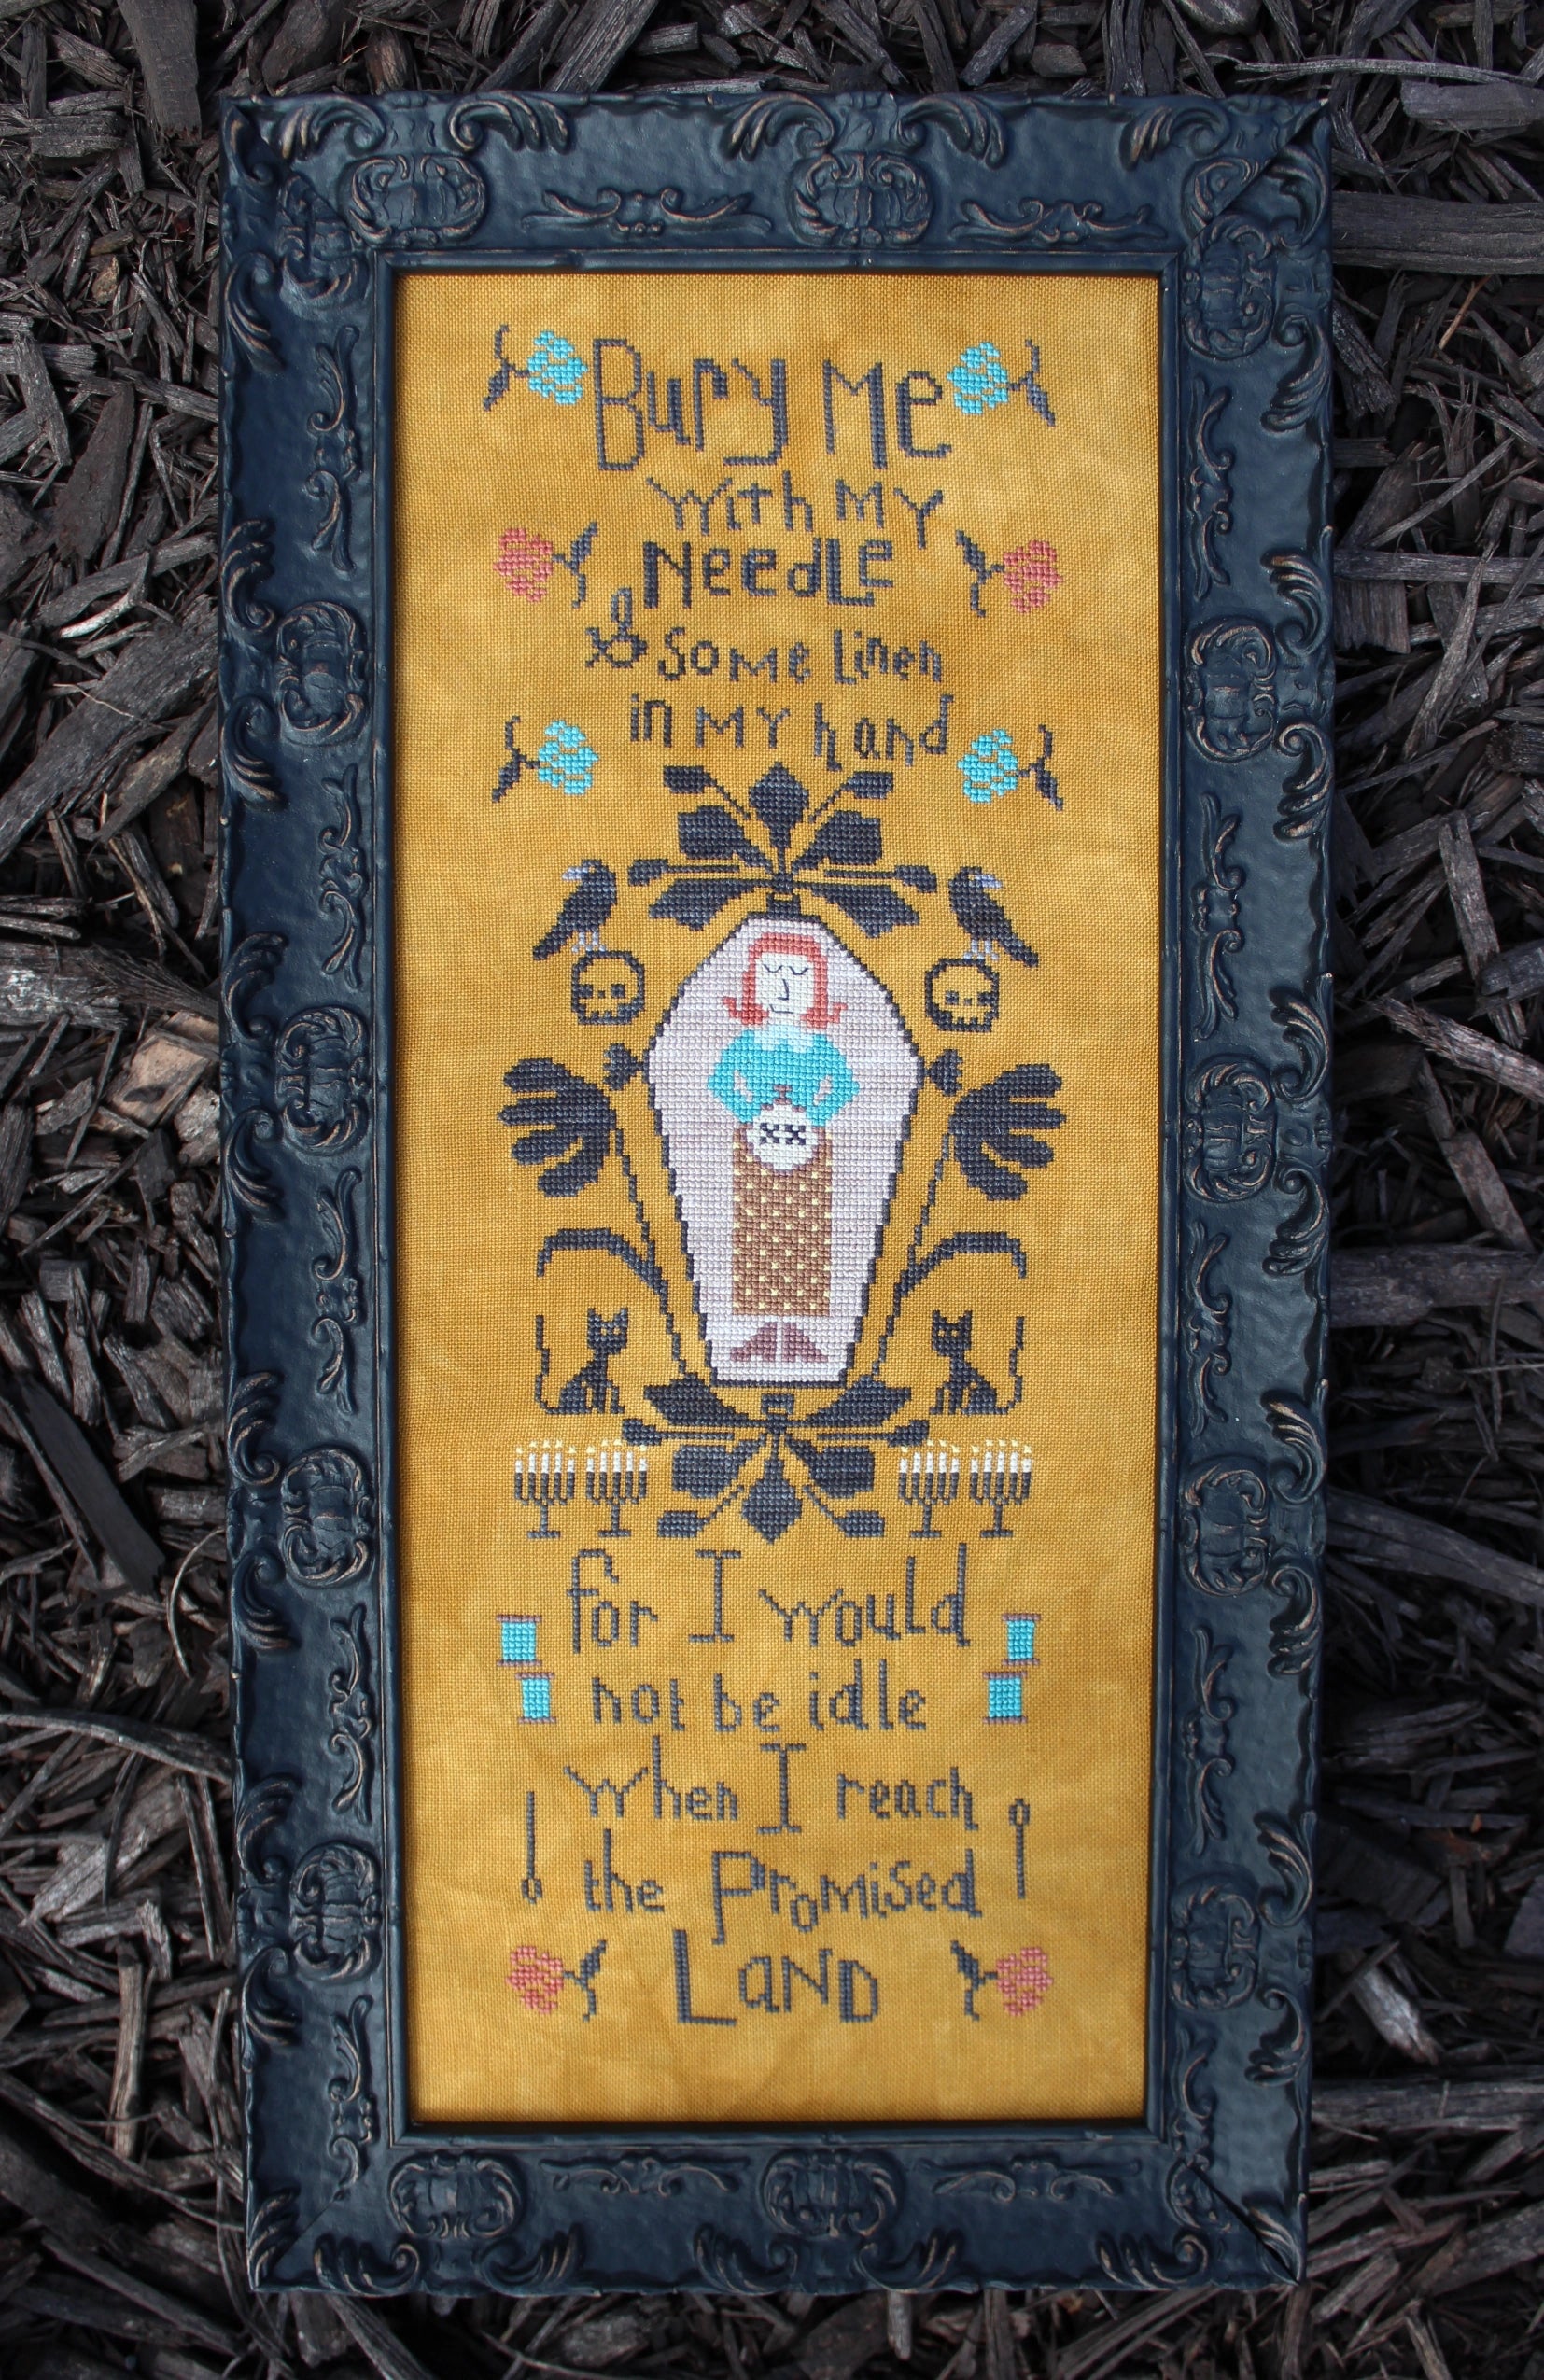 Bury Me
with MY
NeedLe
& SoMe Linen
in MY hand
XX
for I would
not be idle
when I reach
the ProMiSed
LaND